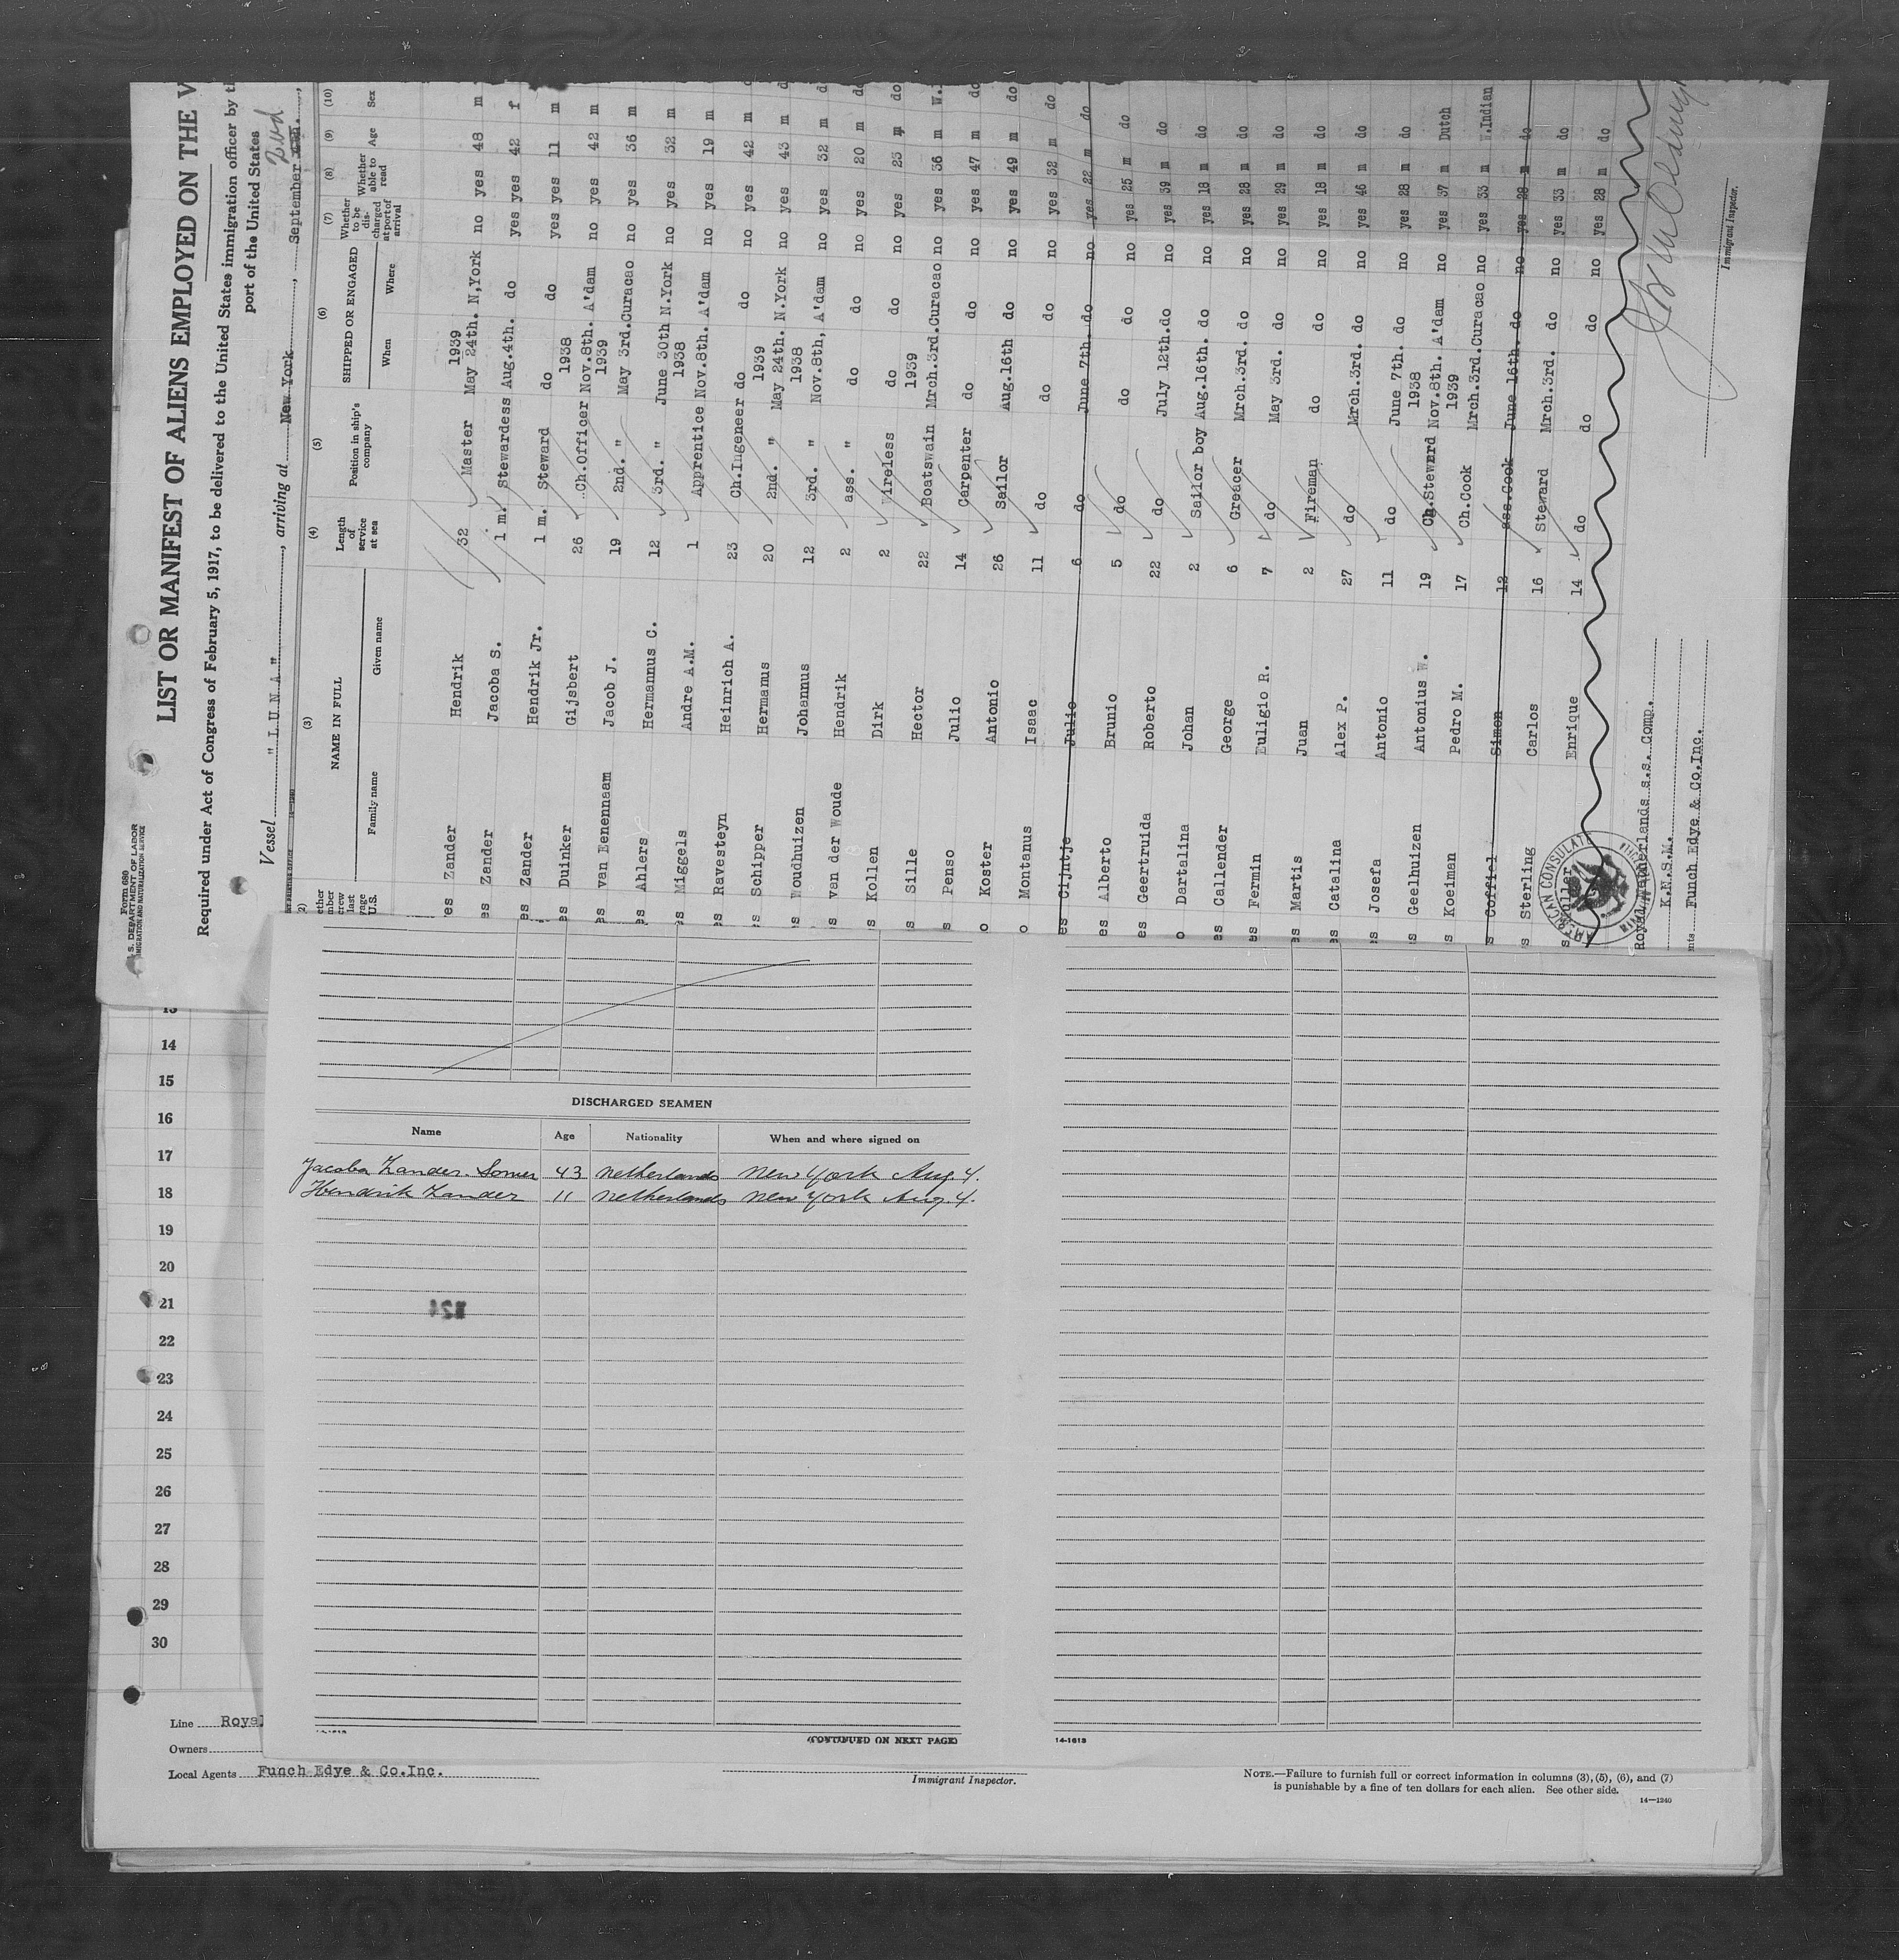 Form 680
U. S. DEPARTMENT OF LABOR
IMMIGRATION AND NATURALIZATION SERVICE
LIST OR MANIFEST OF ALIENS EMPLOYED ON THE V
Required under Act of Congress of February 5, 1917, to be delivered to the United States immigration officer by th
port of the United States
Vessel " L U N A ", arriving at New York, September
(3) (4) (5) (6) (7) (8) (9) (10)
NAME IN FULL Length of service at sea Position in ship's company SHIPPED OR ENGAGED Whether to be discharged at port of arrival Whether able to read Age Sex
Family name Given name When Where
1939
Zander Hendrik 32 Master May 24th. N,York no yes 48 m
Zander Jacoba S. 1 m. Stewardess Aug.4th. do yes yes 42 f
Zander Hendrik Jr. 1 m. Steward do do yes yes 11 m
1938
Duinker Gijsbert 26 Ch.Officer Nov.8th. A'dam no yes 42 m
1939
van Eenennaam Jacob J. 19 2nd. " May 3rd.Curacao no yes 36 m
Ahlers Hermannus C. 12 3rd. " June 30th N.York no yes 32 m
1938
Miggels Andre A.M. 1 Apprentice Nov.8th. A'dam no yes 19 m
Ravesteyn Heinrich A. 23 Ch.Ingeneer do do no yes 42 m
1939
Schipper Hermanus 20 2nd. " May 24th. N.York no yes 43 m
1938
Woudhuizen Johannus 12 3rd. " Nov.8th, A'dam no yes 32 m
van der Woude Hendrik 2 ass. " do do no yes 20 m do
Kollen Dirk 2 Wireless do do no yes 23 m do
1939
Sille Hector 22 Boatswain Mrch.3rd.Curacao no yes 36 m
Penso Julio 14 Carpenter do do no yes 47 m do
Koster Antonio 26 Sailor Aug.16th do no yes 49 m do
Montanus Isaac 11 do do do no yes 32 m do
Cijntje Julio 6 do June 7th. do no yes 22 m do
Alberto Brunio 5 do do do no yes 25 m do
Geertruida Roberto 22 do July 12th.do no yes 39 m do
Dartalina Johan 2 Sailor boy Aug.16th. do no yes 18 m do
Callender George 6 Greacer Mrch.3rd. do no yes 28 m do
Fermin Euligio R. 7 do May 3rd. do no yes 29 m do
Martis Juan 2 Fireman do do no yes 18 m do
Catalina Alex P. 27 do Mrch.3rd. do no yes 46 m do
Josefa Antonio 11 do June 7th. do no yes 28 m do
1938
Geelhuizen Antonius W. 19 Ch.Steward Nov.8th. A'dam no yes 37 m Dutch
1939
Koeiman Pedro M. 17 Ch.Cook Mrch.3rd.Curacao no yes 33 m W.Indian
Coffiel Simon 12 ass.Cook June 16th. do no yes 28 m do
Sterling Carlos 16 Steward Mrch.3rd. do no yes 33 m do
Enrique 14 do do do no yes 28 m do
AMERICAN CONSULATE
Royal Netherlands s.s. Comp.
K.N.S.M.
Funch Edye & Co.Inc.
Immigrant Inspector.
DISCHARGED SEAMEN
Name Age Nationality When and where signed on
Jacoba Zander-Somer 43 Netherlands New York Aug. 4.
Hendrik Zander 11 Netherlands New York Aug. 4.
(CONTINUED ON NEXT PAGE)
14-1618
13
14
15
16
17
18
19
20
21
22
23
24
25
26
27
28
29
30
Line Royal
Owners
Local Agents Funch Edye & Co.Inc.
Immigrant Inspector.
NOTE.—Failure to furnish full or correct information in columns (3), (5), (6), and (7)
is punishable by a fine of ten dollars for each alien. See other side.
14—1240